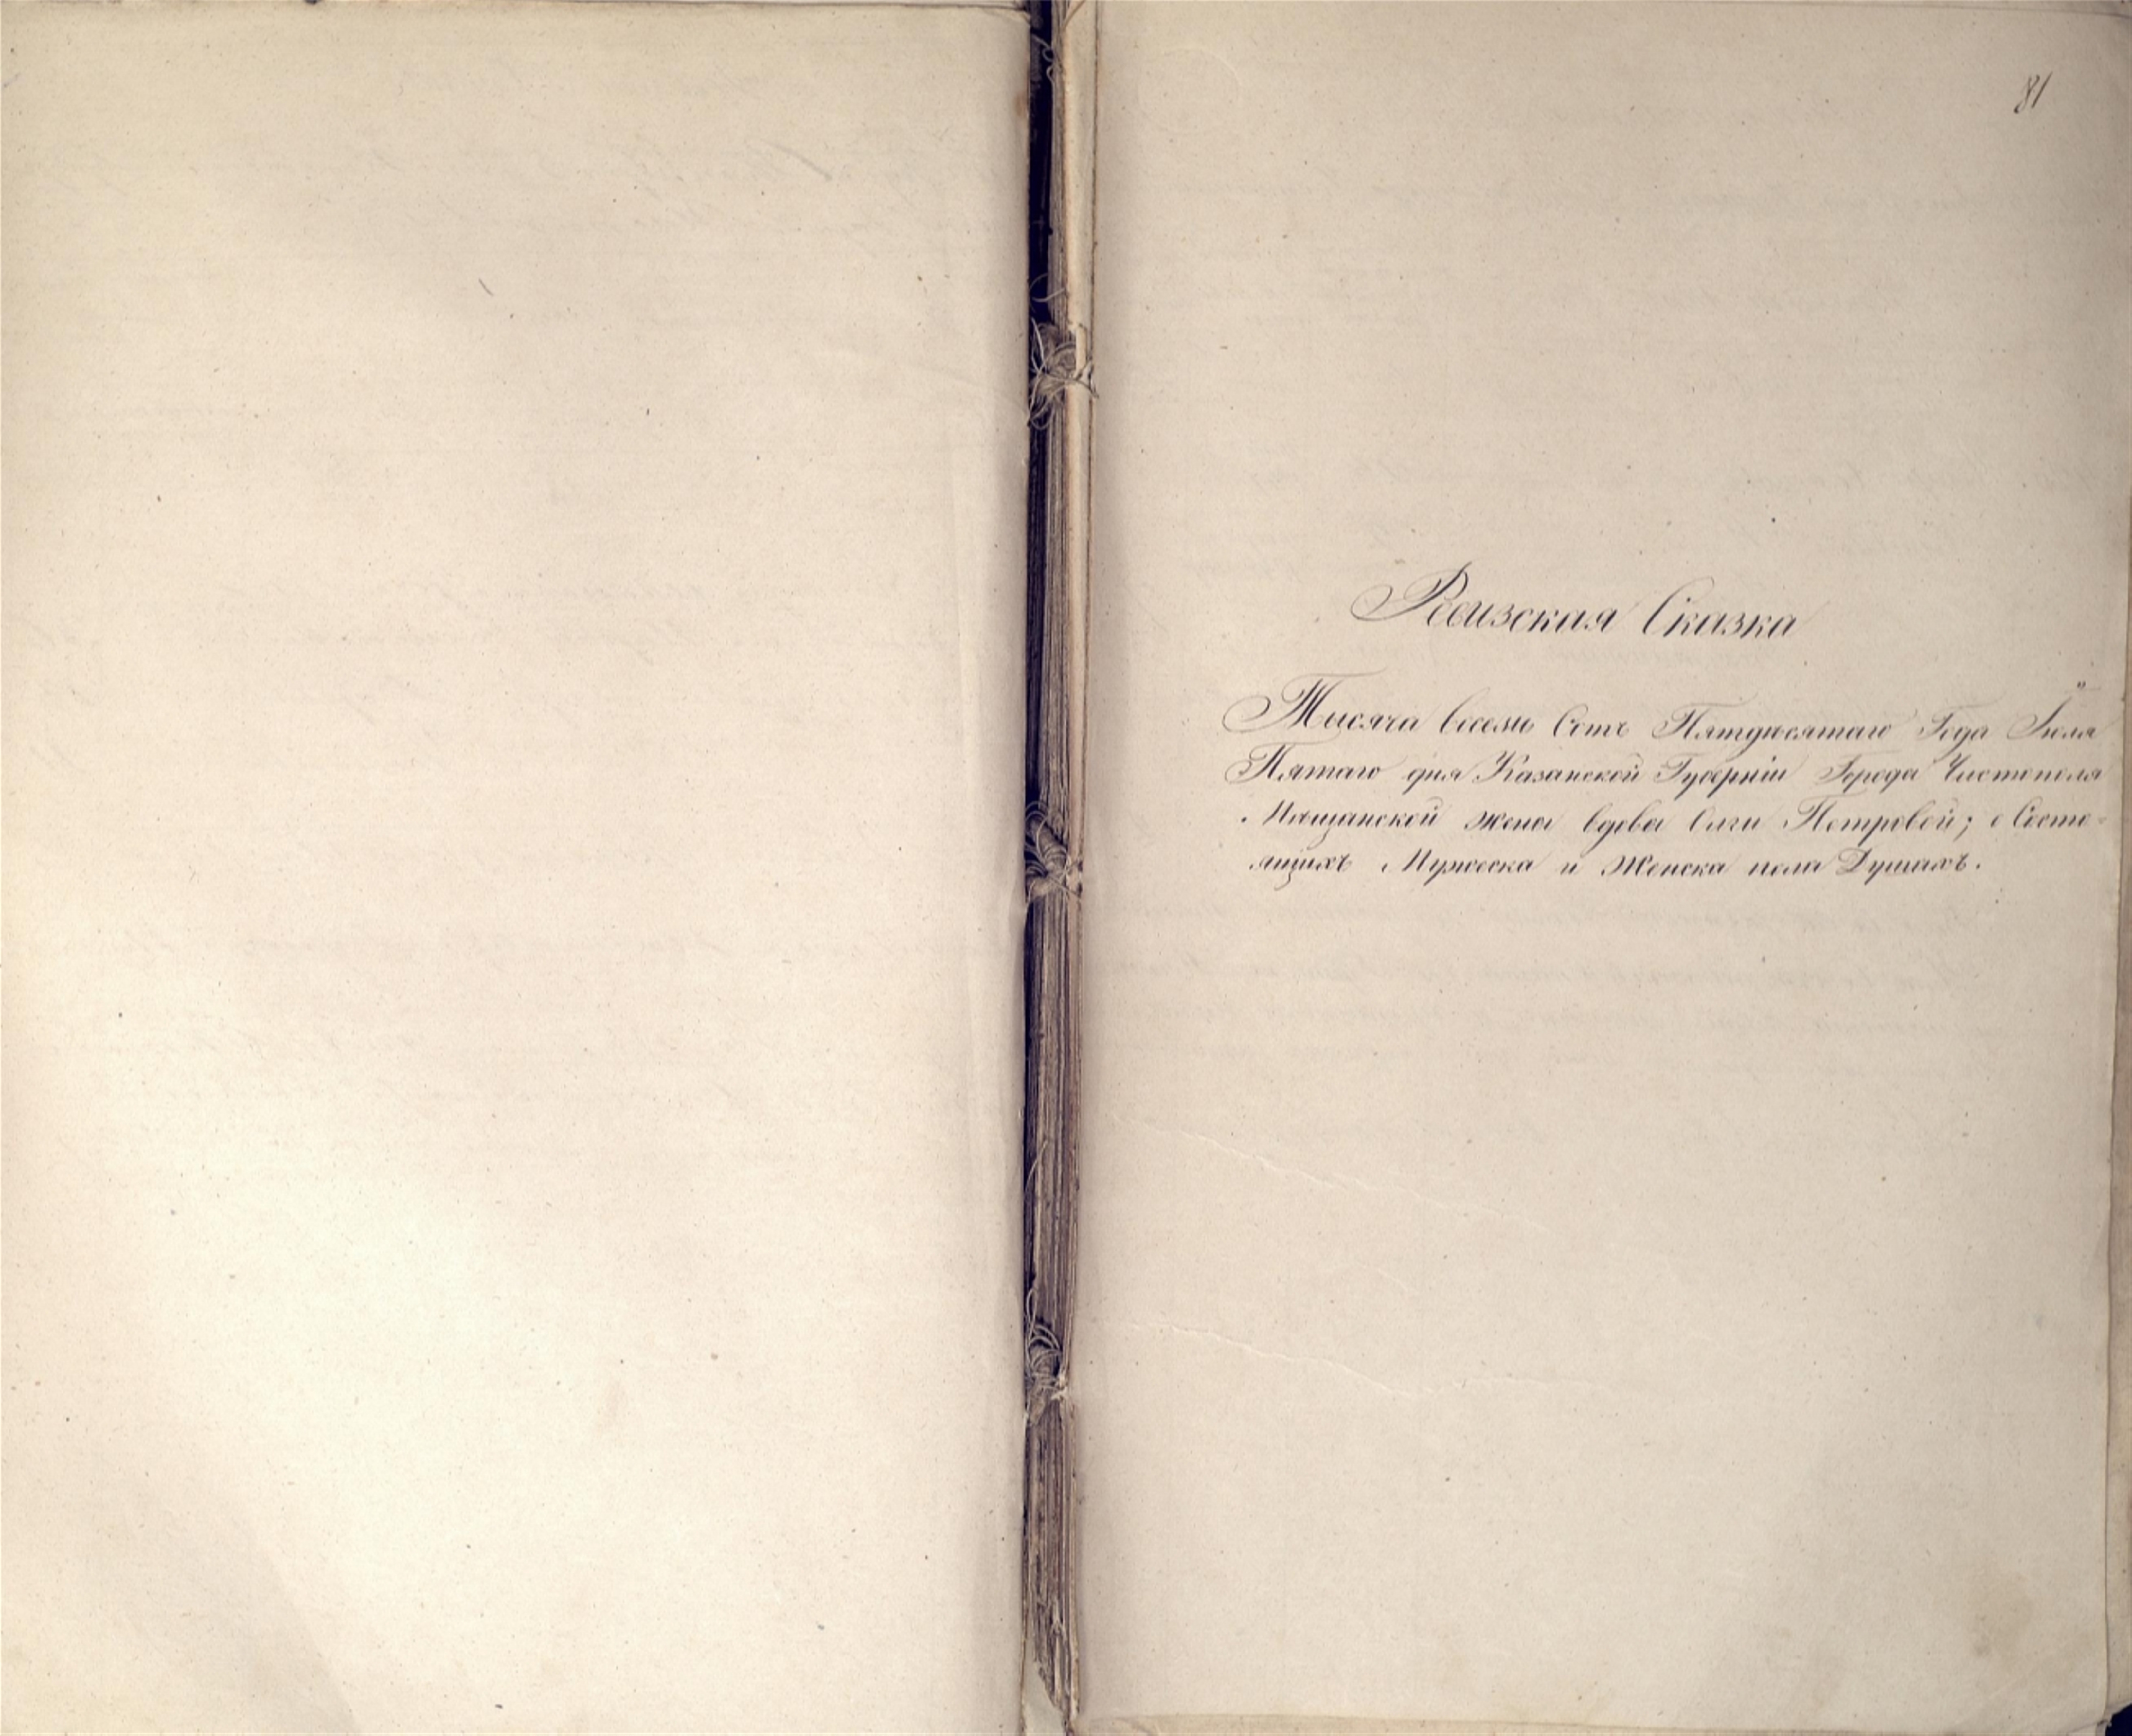 81
Ревизская Сказка
Тысяча восемь Сотъ Пятдесятаго Года Іюля
Пятаго дня Казанской Губерніи Города Чистополя
Мѣщанской жены вдовы Ольги Петровой; о Состо-
ящихъ Мужеска и Женска пола Душахъ.